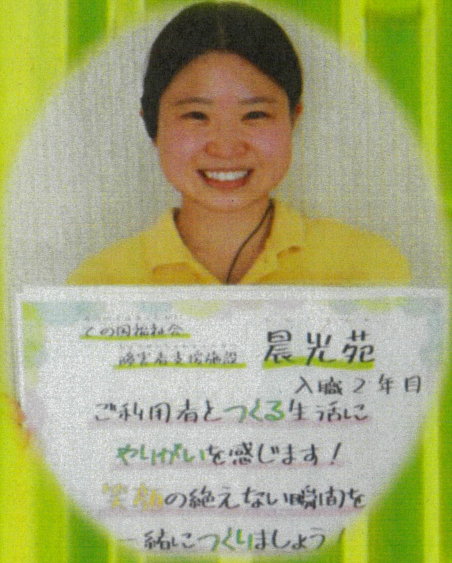 との国福祉会
障害者支援施設 晨光苑
入職2年目
ご利用者とつくる生活に
やりがいを感じます！
笑顔の絶えない瞬間を
一緒につくりましょう！